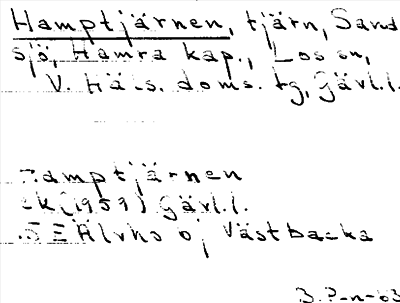 Hamptjärnen, tjärn, Sand
sjö, Hamra kap., Los sn,
V. Häls. doms. tg, Gävl.l.
Hamptjärnen
ek (1959) Gävl.l.
SE Älvho o; Västbacka